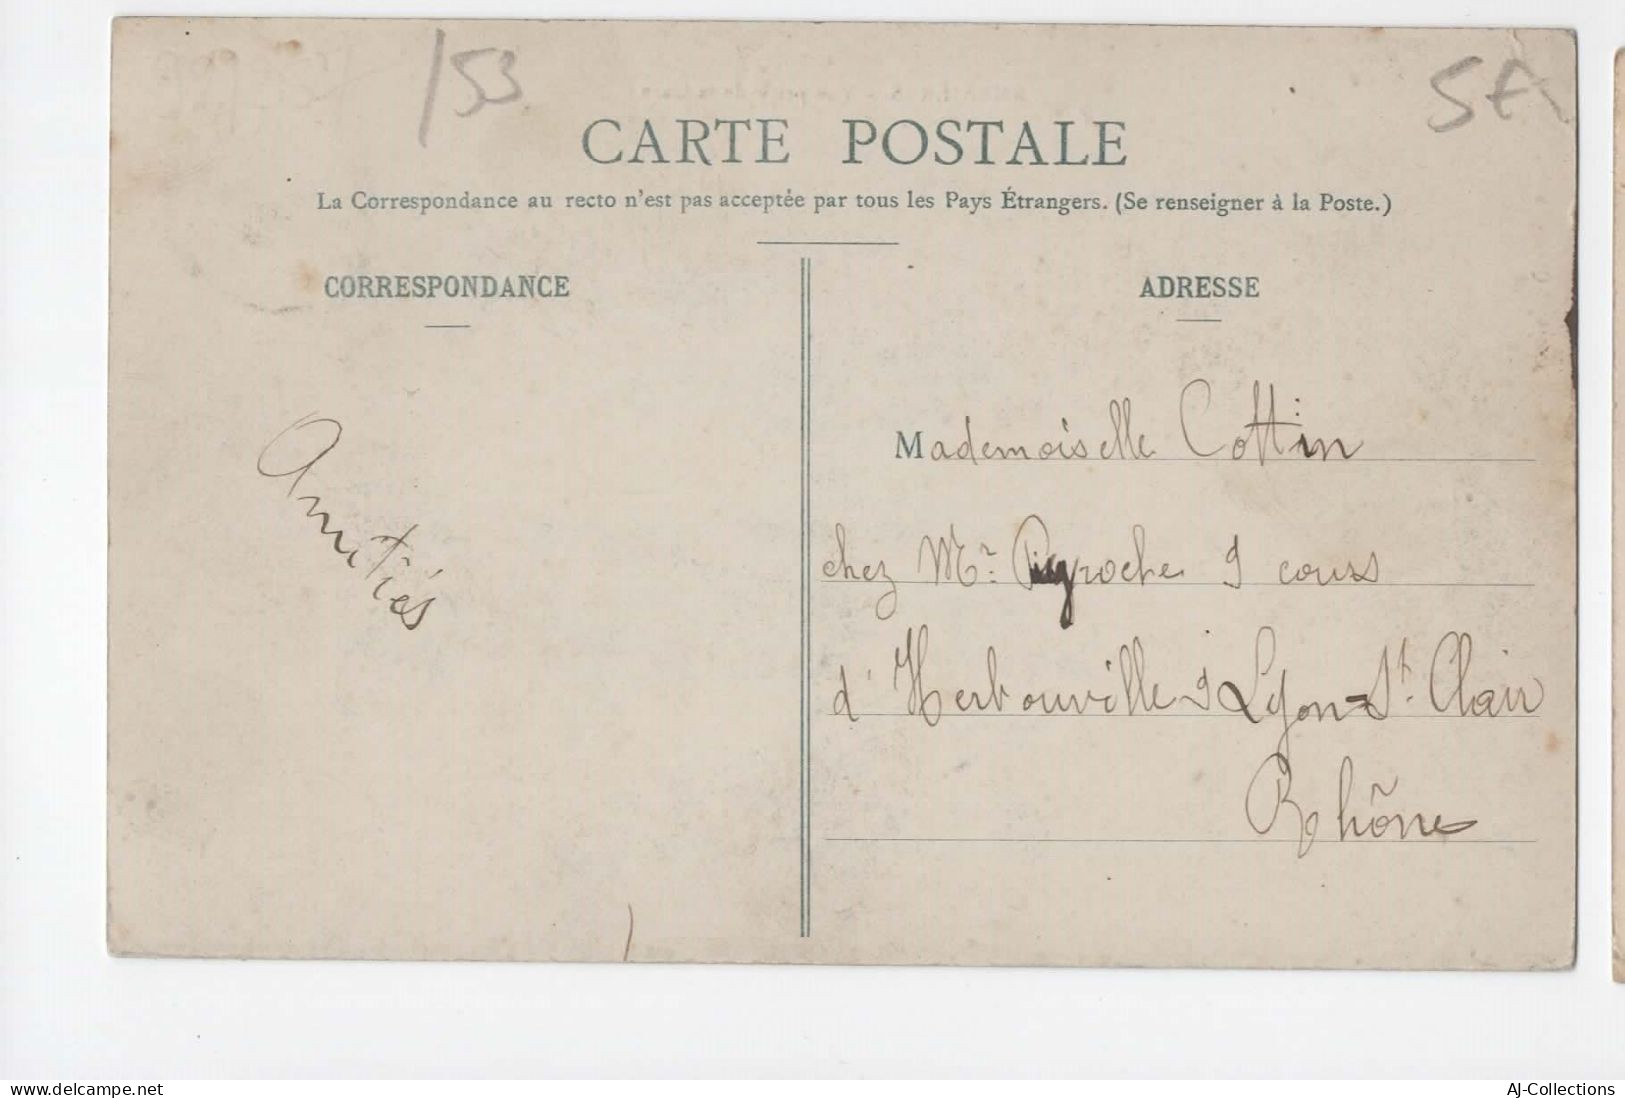 /53
5€
CARTE POSTALE
La Correspondance au recto n'est pas acceptée par tous les Pays Étrangers. (Se renseigner à la Poste.)
CORRESPONDANCE
Amitiés
ADRESSE
Mademoiselle Cottin
chez Mr. Peyroche 9 cours
d'Herbouville 9 Lyon-St. Clair
Rhône
www.delcampe.net
AJ-Collections